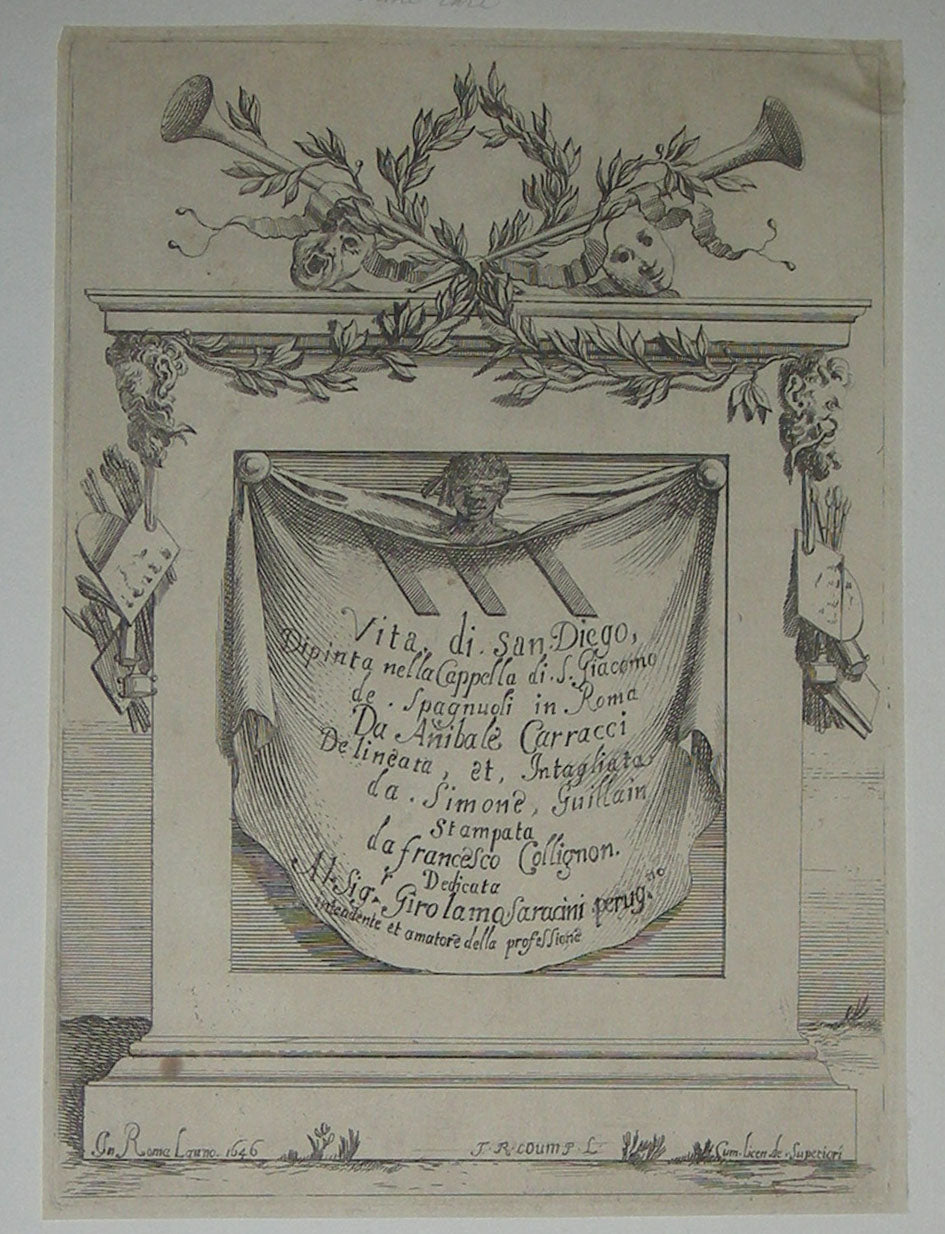 Vita. di. san Diego,
Dipinta nella Cappella di. S. Giacomo
de. Spagnuoli in Roma
Da Añibale Carracci
Delineata, et, Intagliata
da. Simone, Guillain
Stampata
da francesco Collignon.
Dedicata
Al. Sig.r Girolamo Saracini perug.no
intendente et amatore della professione
In Roma L'anno. 1646
Cum. licen. de. Superiori